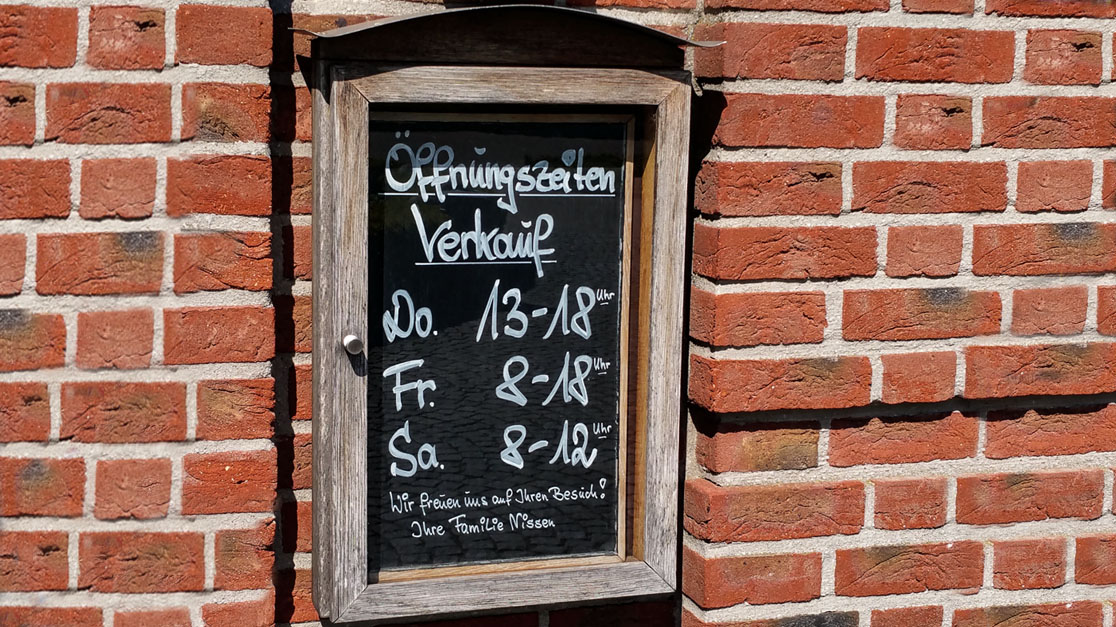 Öffnungszeiten
Verkauf
Do. 13-18 Uhr
Fr. 8-18 Uhr
Sa. 8-12 Uhr
Wir freuen uns auf Ihren Besuch!
Ihre Familie Nissen